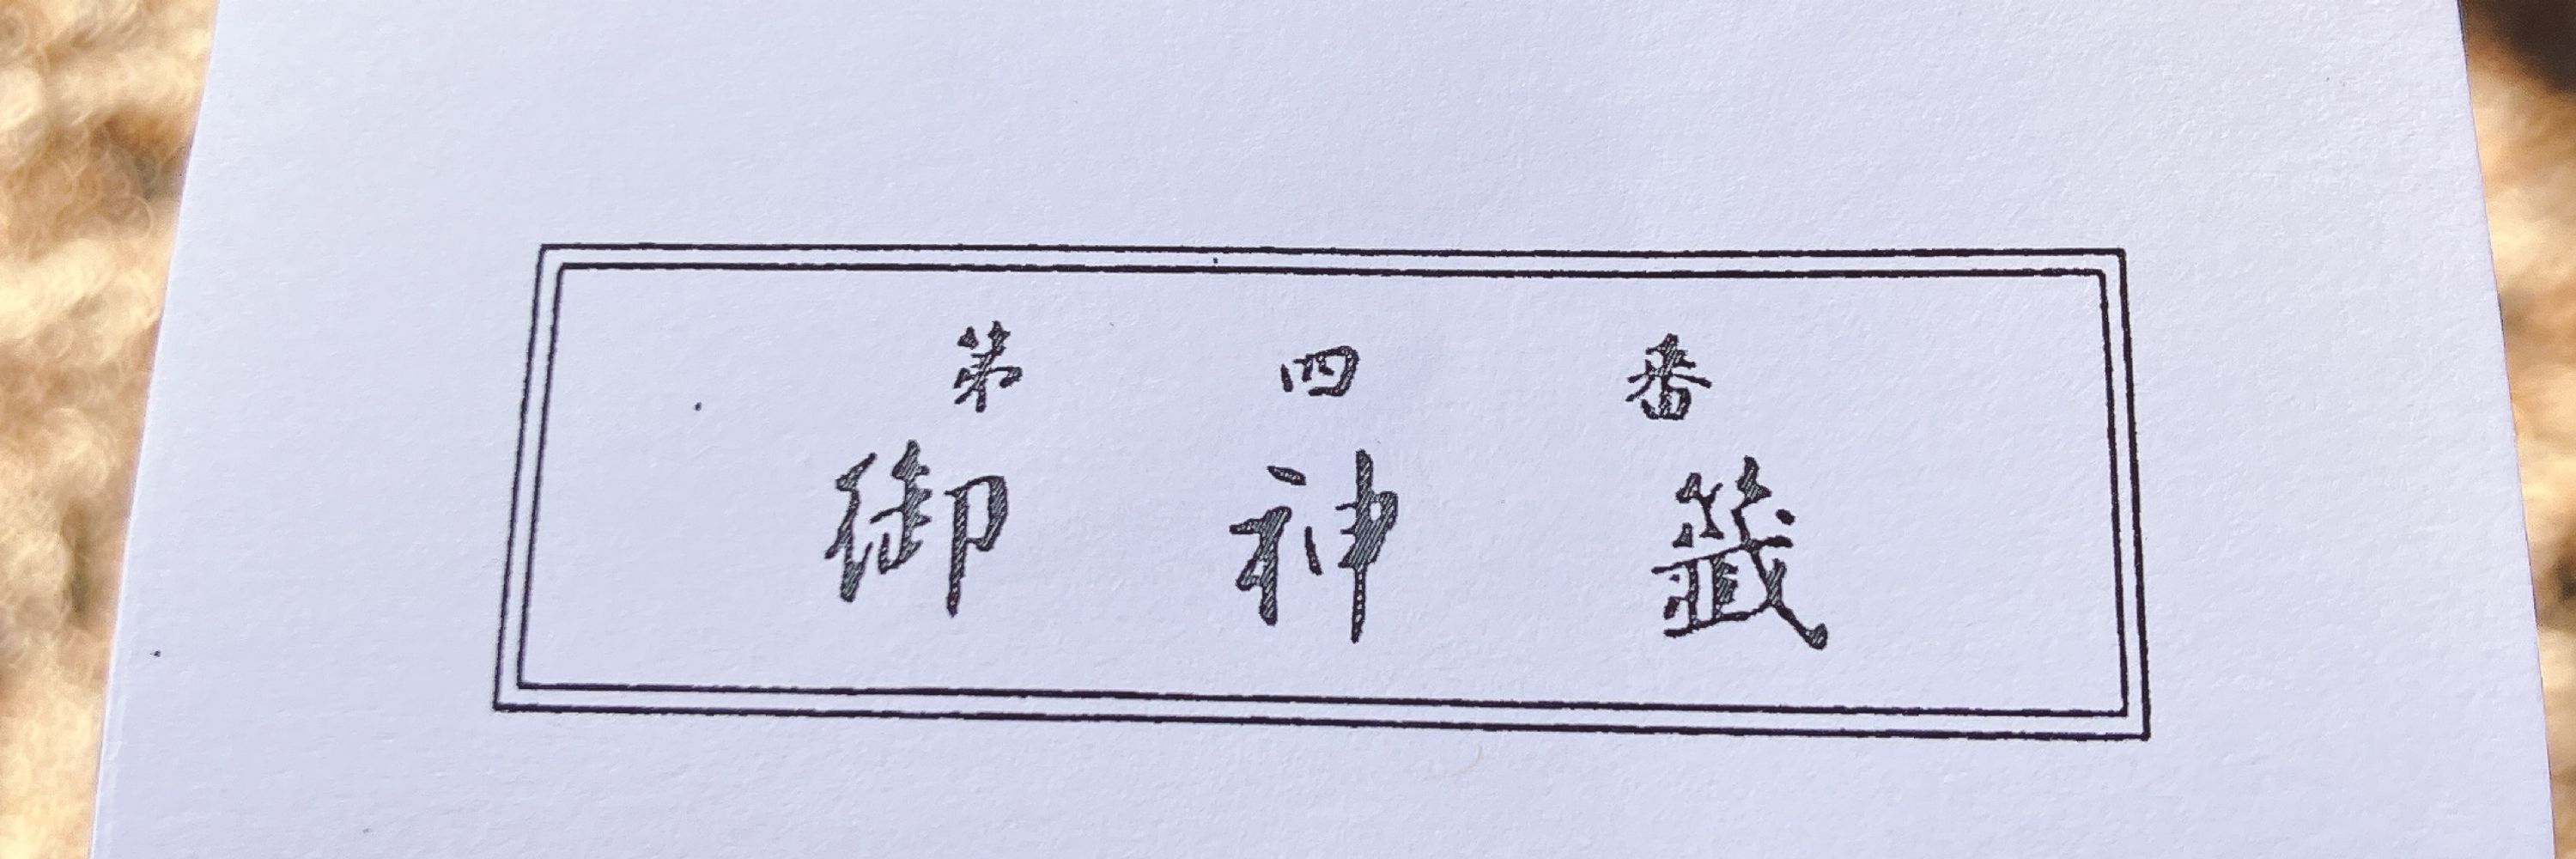 第四番
御神籤